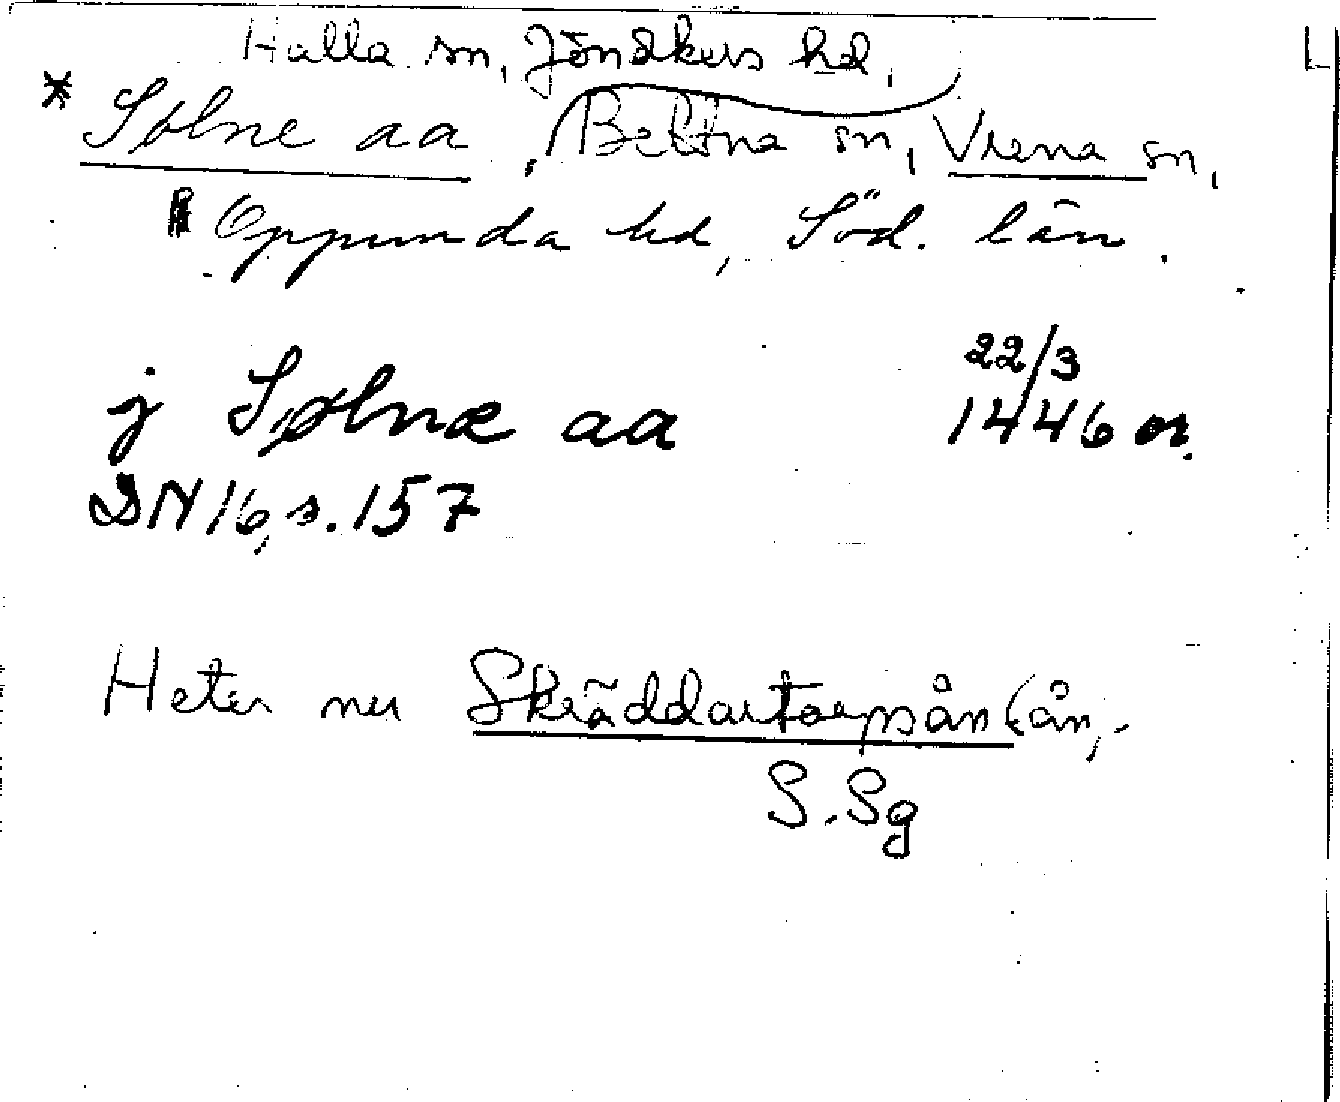 Halla sn, Jönåkers hd,
* Sølne aa, Bettna sn, Vrena sn,
Oppunda hd, Söd. län.
j Sølnæ aa 22/3 1446 or.
DN 16, s. 157
Heter nu Skräddartorpsån (ån,.
S. Sg